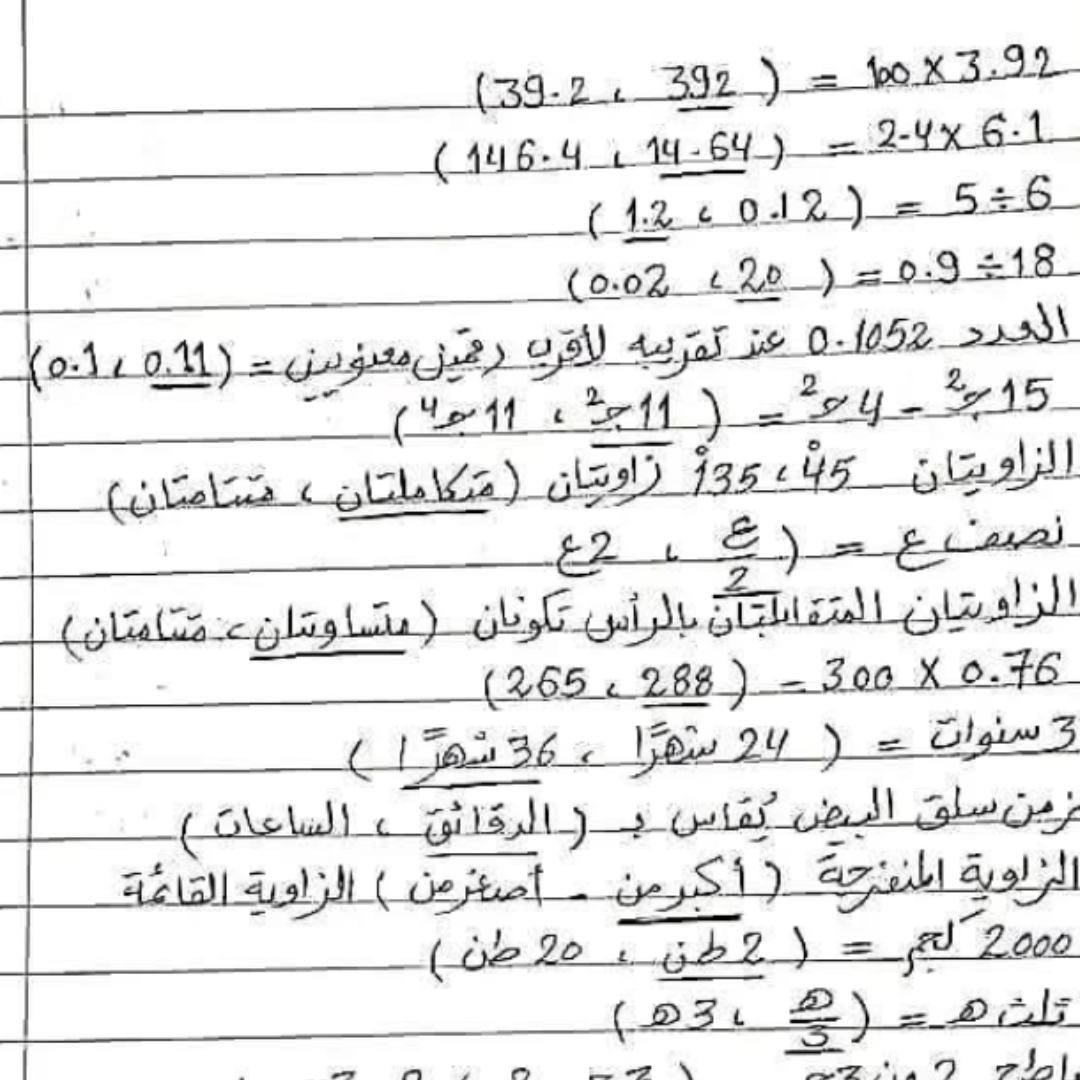 3.92 × 100 = ( 392 ، 39.2)
6.1 × 2.4 = ( 14.64 ، 146.4 )
6 ÷ 5 = ( 0.12 ، 1.2 )
18 ÷ 0.9 = ( 20 ، 0.02)
العدد 0.1052 عند تقريبه لأقرب رقمين معنويين = (0.11 ، 0.1)
15جـ² - 4جـ² = ( 11جـ² ، 11جـ⁴)
الزاويتان 45° ، 135° زاويتان (متكاملتان ، متتامتان)
نصف ع = ( ع/2 ، 2ع
الزاويتان المتقابلتان بالرأس تكونان (متساويتان ، متتامتان)
0.76 × 300 = ( 288 ، 265)
3 سنوات = ( 24 شهرًا ، 36 شهرًا )
زمن سلق البيض يُقاس بـ ( الدقائق ، الساعات )
الزاوية المنفرجة ( أكبر من - أصغر من ) الزاوية القائمة
2000 كجم = ( 2 طن ، 20 طن )
ثلث هـ = ( هـ/3 ، 3هـ )